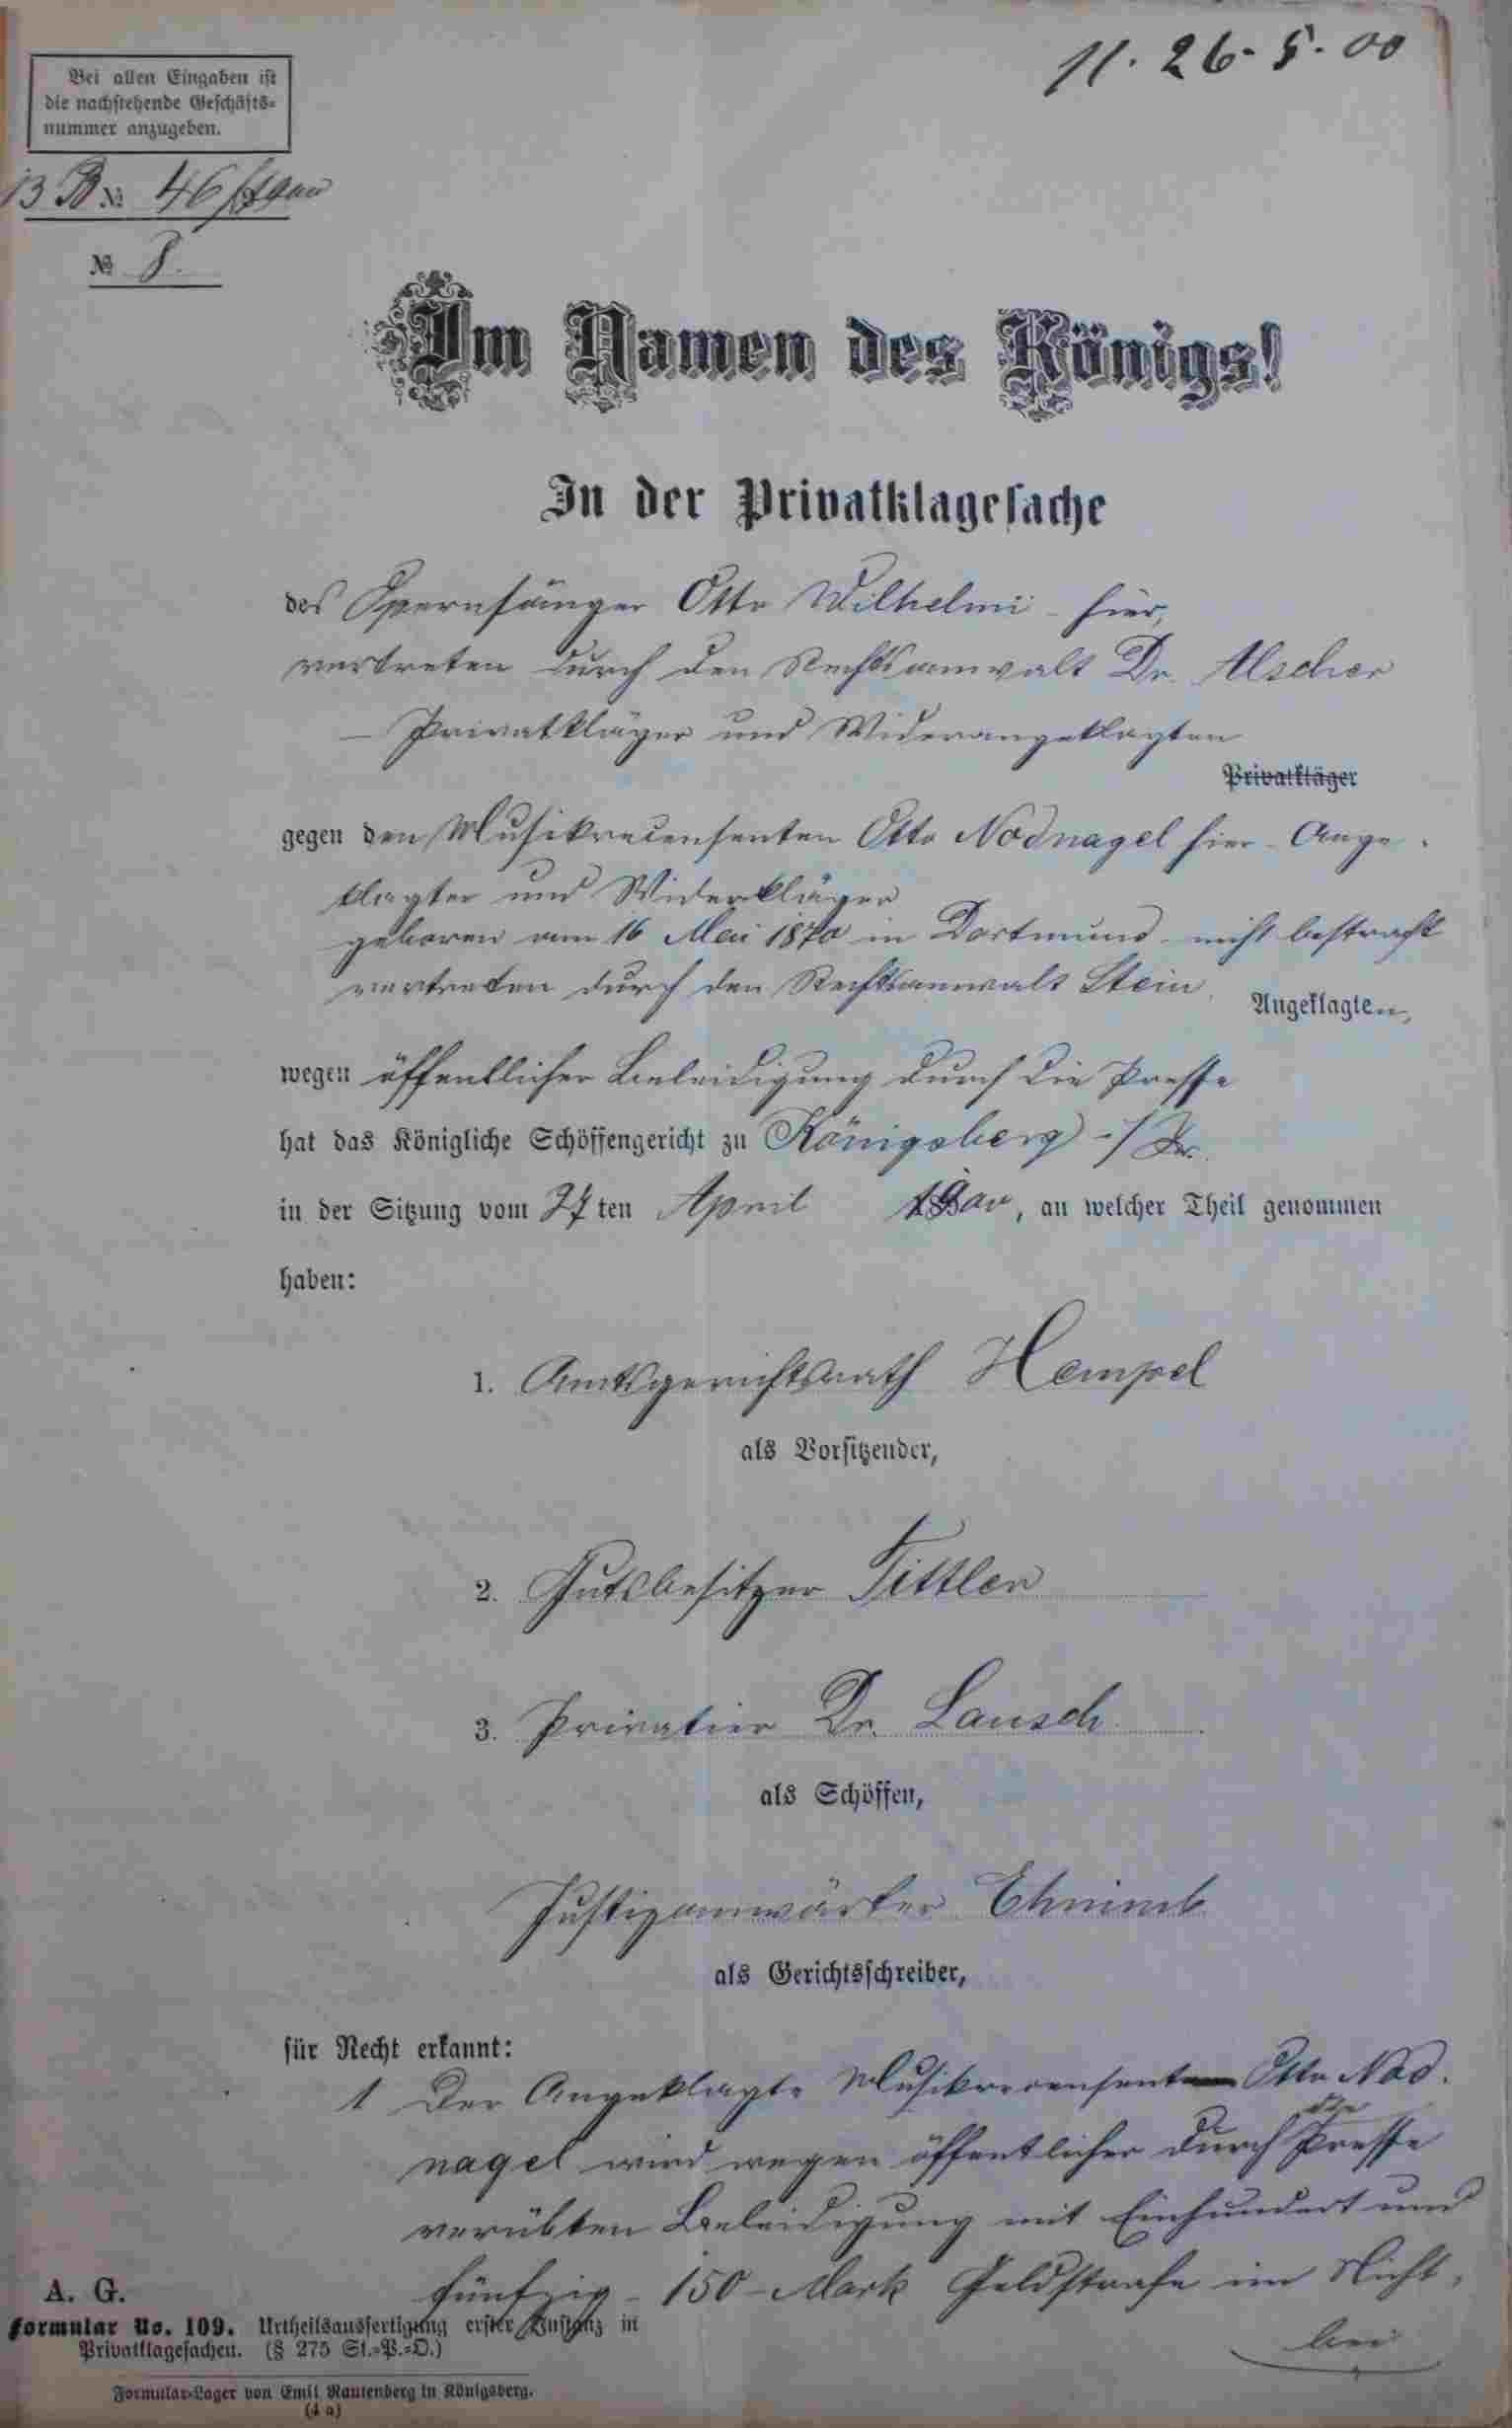 11. 26. 5. 00
Bei allen Eingaben ist
die nachstehende Geschäfts-
nummer anzugeben.
13 B № 46 / 1900
№ 8.
Im Namen des Königs!
In der Privatklagesache
des Opernsänger Otto Wilhelmi - hier,
vertreten durch den Rechtsanwalt Dr. Alscher
– Privatkläger und Widerangeklagten
Privatkläger
gegen den Musikrecensenten Otto Nodnagel hier - Ange-
klagter und Widerkläger
geboren am 16 Mai 1870 in Dortmund - nicht bestraft
vertreten durch den Rechtsanwalt Stein.
Angeklagten,
wegen öffentlicher Beleidigung durch die Presse
hat das Königliche Schöffengericht zu Königsberg i/Pr.
in der Sitzung vom 27ten April 1900, an welcher Theil genommen
haben:
1. Amtsgerichtsrath Hempel
als Vorsitzender,
2. Gutsbesitzer Tittler
3. Privatier Dr. Lausch
als Schöffen,
Justizanwärter
als Gerichtsschreiber,
für Recht erkannt:
1 Der Angeklagte Musikrecensent Otto Nod-
nagel wird wegen öffentlicher durch die Presse
verübten Beleidigung mit Einhundert und
fünfzig - 150 - Mark Geldstrafe im Nicht-
bei
A. G.
Formular No. 109. Urtheilsausfertigung erster Instanz in
Privatklagesachen. (§ 275 St.=P.=O.)
Formular-Lager von Emil Rautenberg in Königsberg.
(4 a)